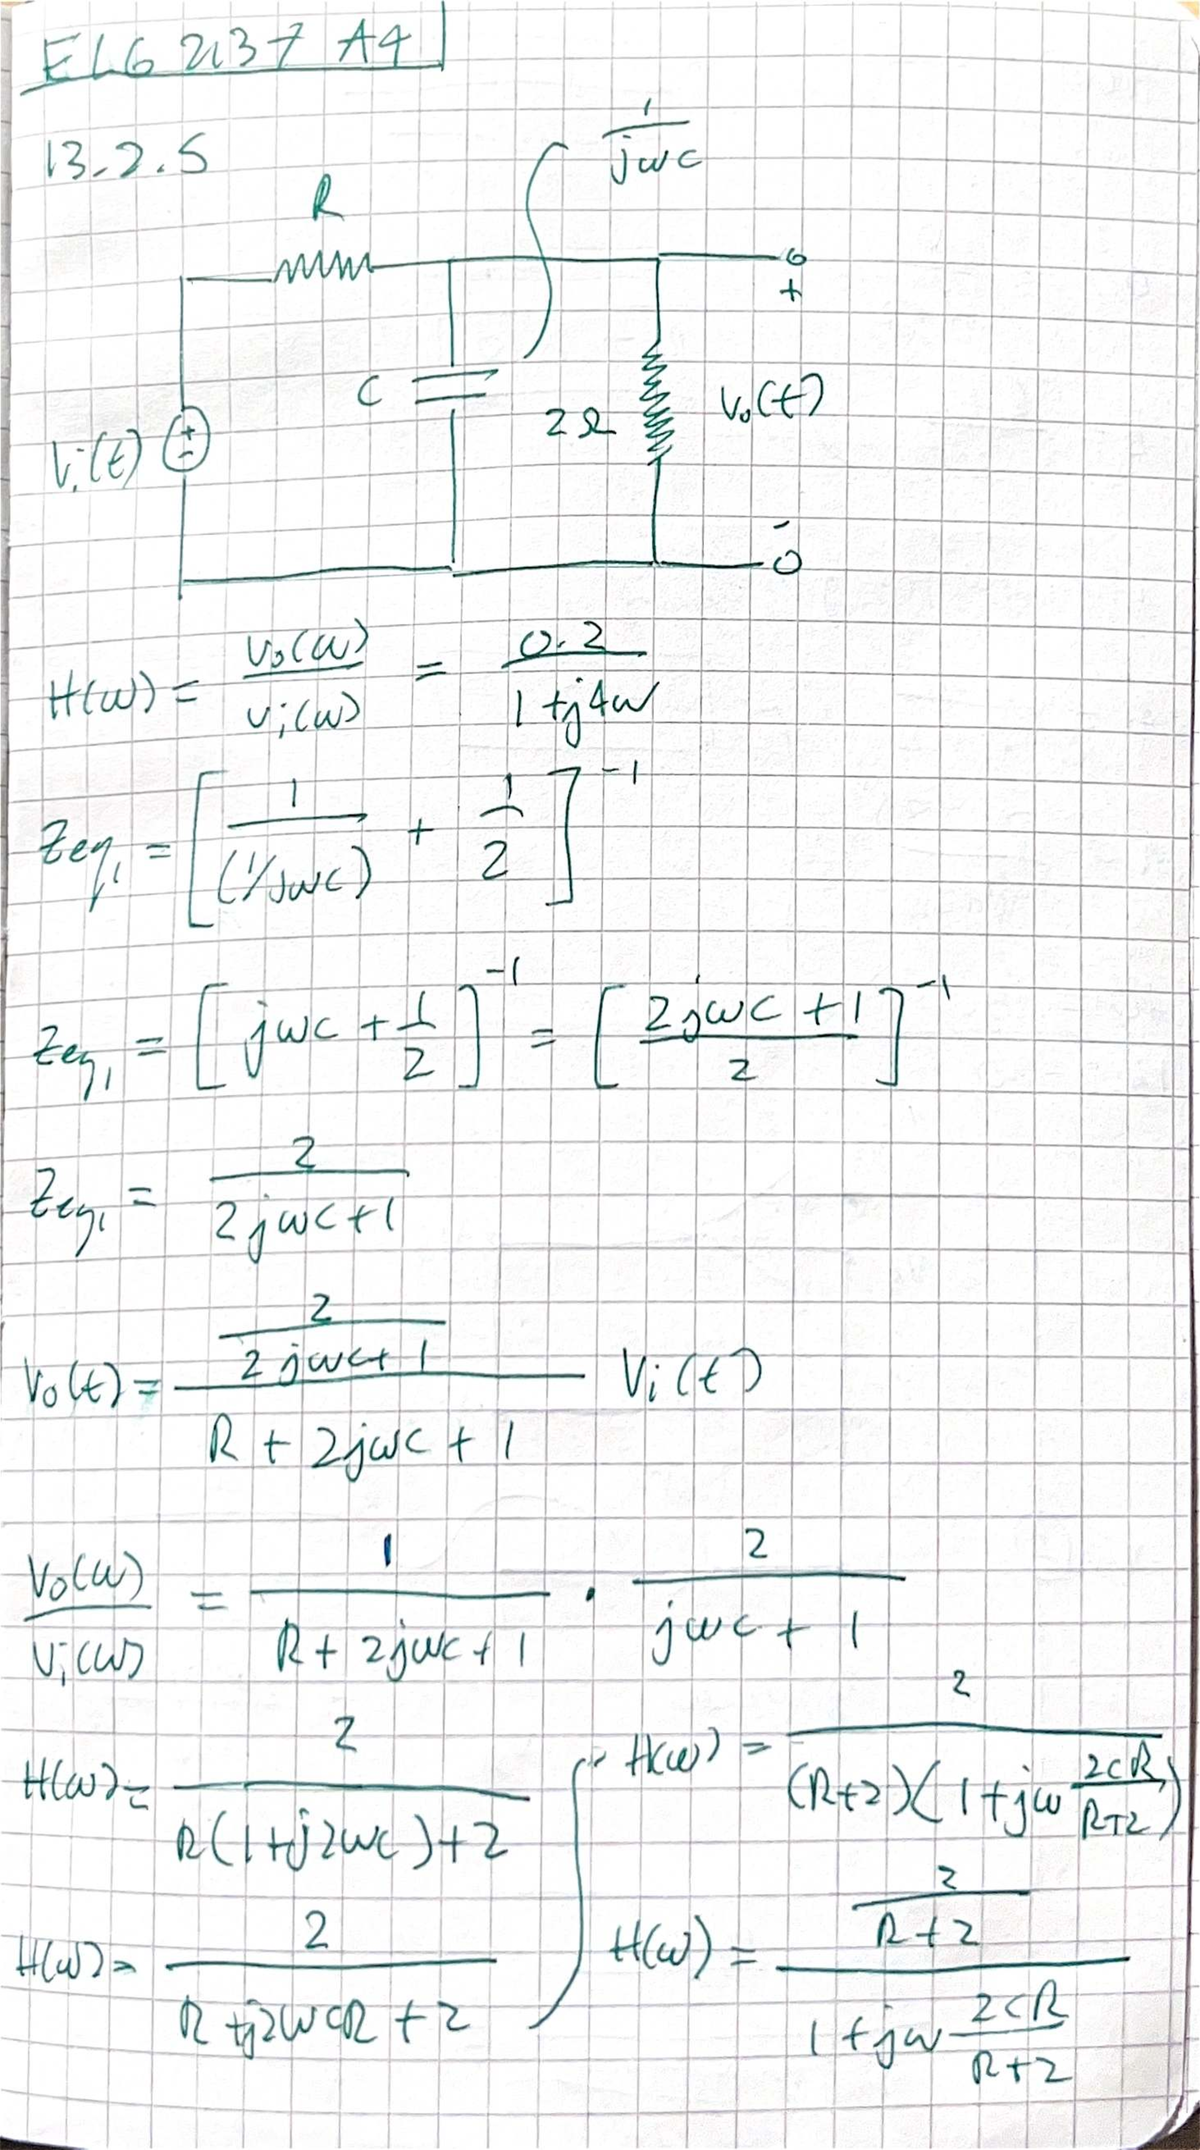 ELG 2137 A4
13.2.5
1/jωc
R
+
C
2Ω
Vo(t)
Vi(t)
+
-
-
H(ω) = Vo(ω)/Vi(ω) = 0.2/1+j4ω
Zeq1 = [1/(1/jωc) + 1/2]^-1
Zeq1 = [jωc + 1/2]^-1 = [2jωc+1/2]^-1
Zeq1 = 2/2jωc+1
Vo(t) = 2/2jωc+1 / R + 2jωc + 1 Vi(t)
Vo(ω)/Vi(ω) = 1/R + 2jωc + 1 · 2/jωc + 1
H(ω) = 2/R(1+j2ωc)+2
H(ω) = 2/R+j2ωcR+2
H(ω) = 2/(R+2)(1+jω 2cR/R+2)
H(ω) = 2/R+2 / 1+jω 2cR/R+2